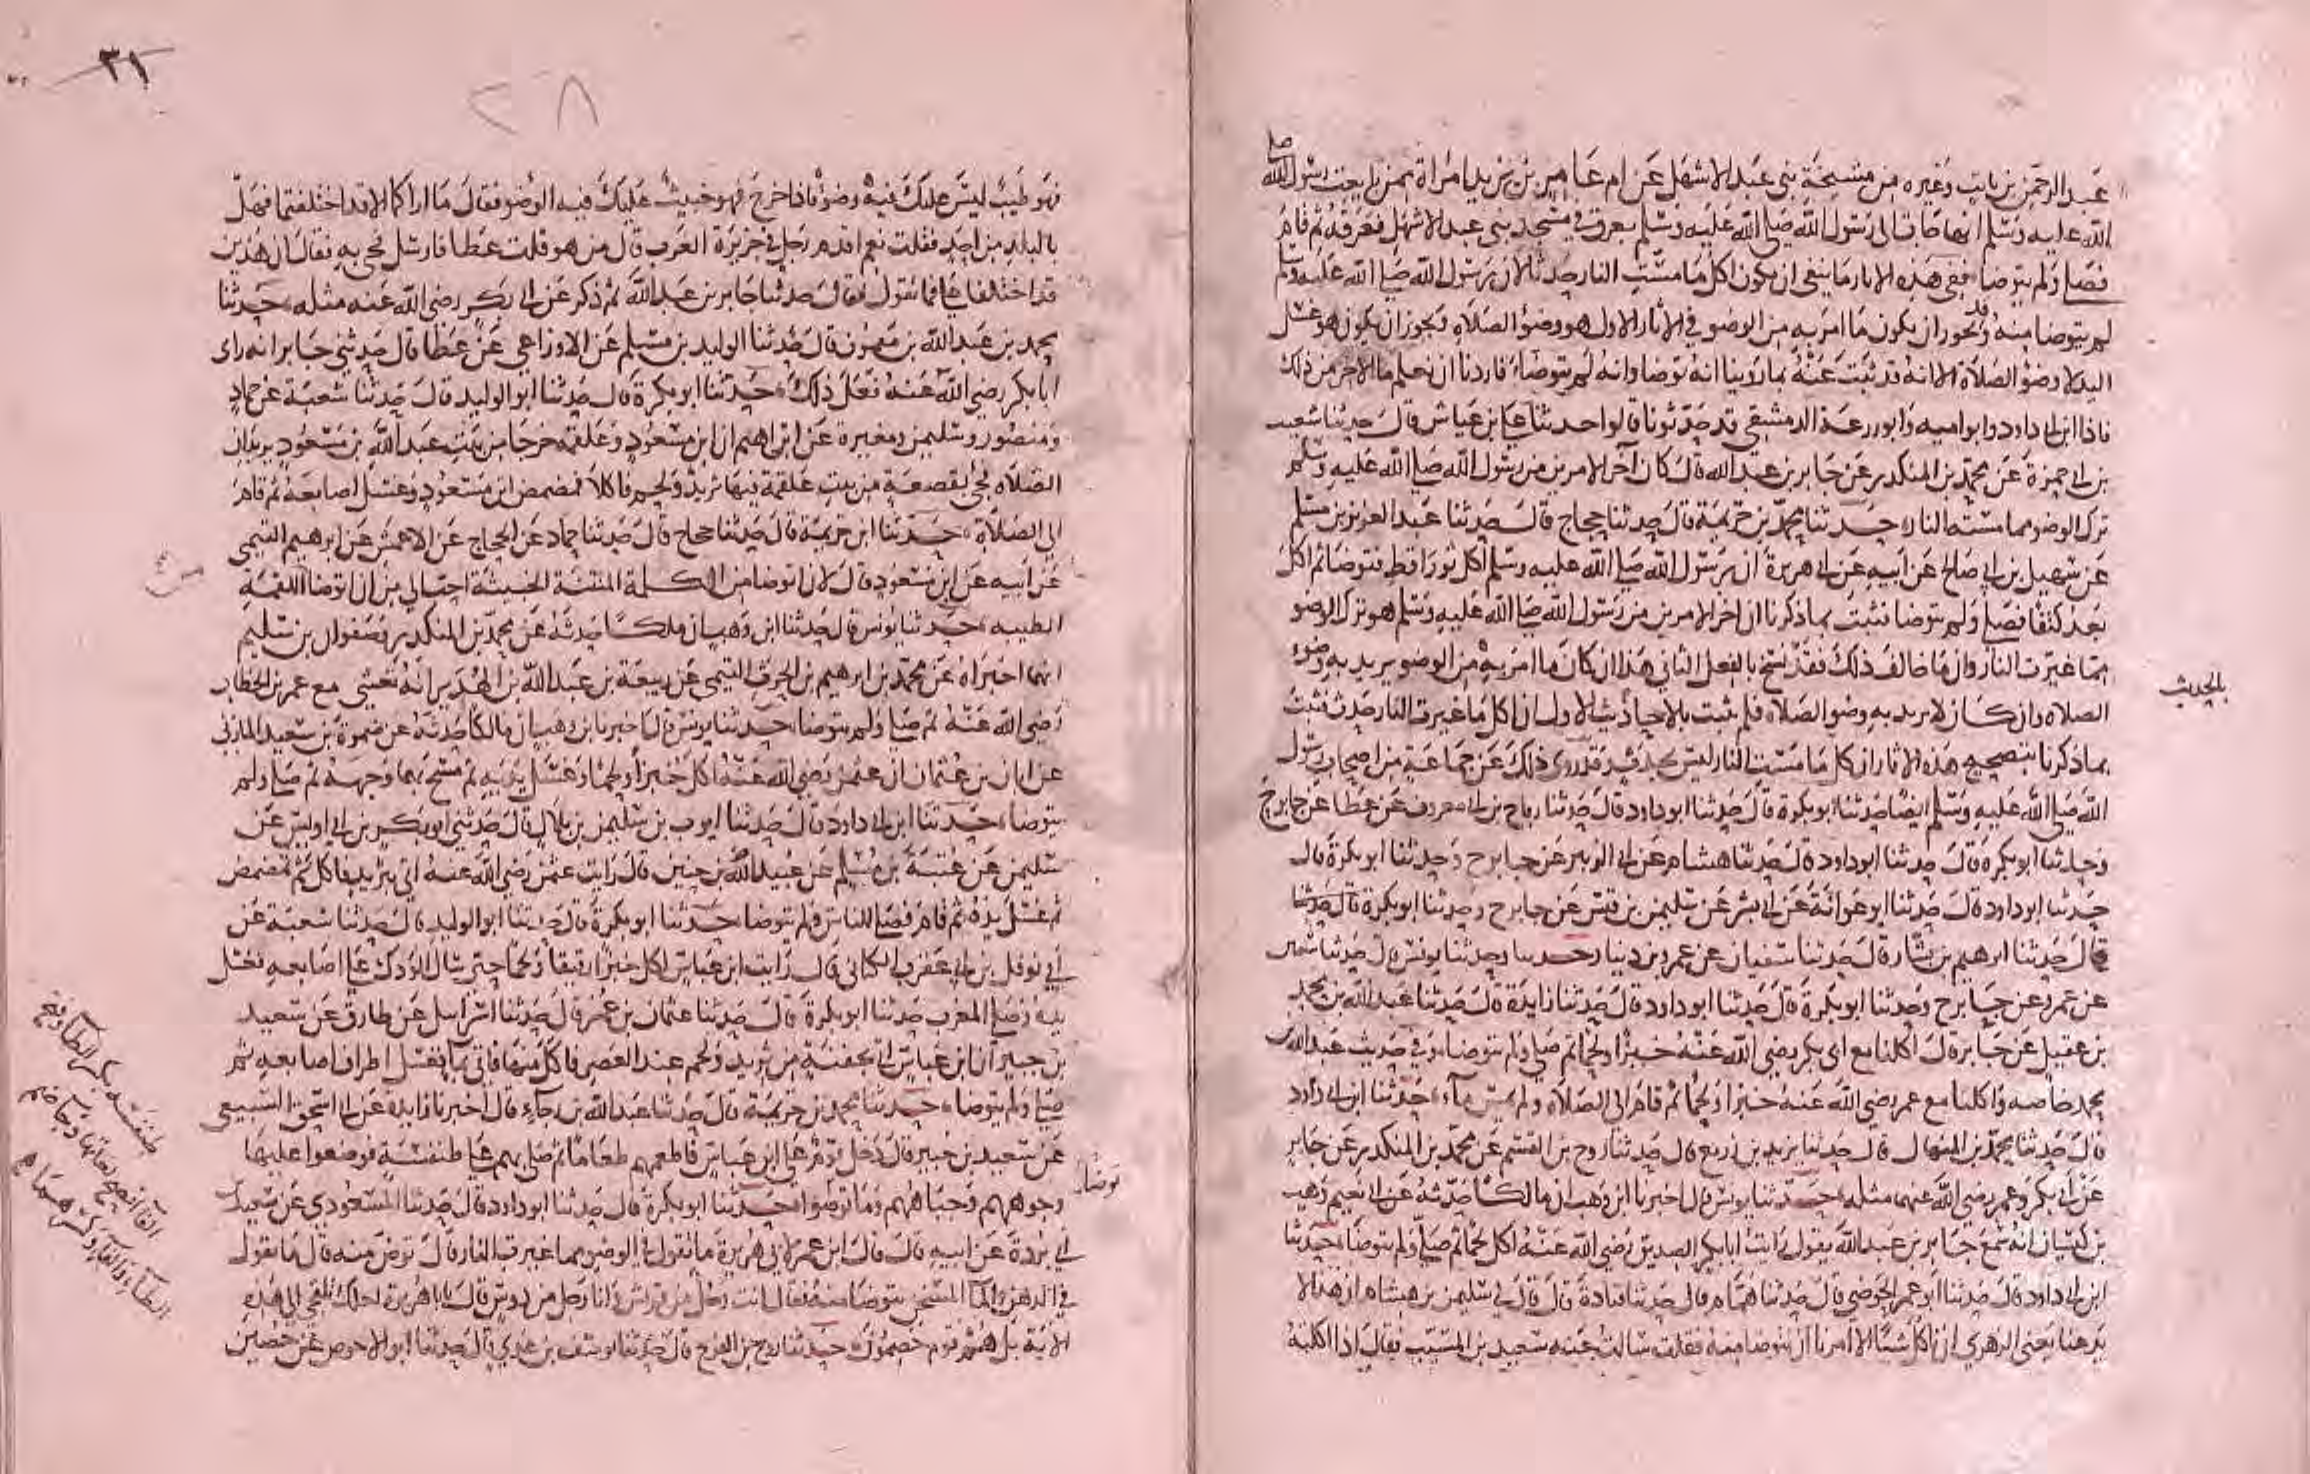 عبد الرحمن بن ثابت وغيره من مشيخة بني عبد الاشهل عن ام عامر بن يزيد امراة ممن بايعت رسول الله صلى
الله عليه وسلم انها جات الى رسول الله صلى الله عليه وسلم بعرق في مسجد بني عبد الاشهل فتعرقه ثم قام
فصلى ولم يتوضا ففي هذه الاثار ما ينفي ان يكون اكل ما مست النار حدثا لان رسول الله صلى الله عليه وسلم
لم يتوضا منه وقد يجوز ان يكون ما امر به من الوضو في الاثار الاول هو وضو الصلاة ويجوز ان يكون هو غسل
اليد لا وضو الصلاة الا انه قد ثبت عنه بما روينا انه توضا وانه لم يتوضا فاردنا ان نعلم ما الاخر من ذلك
فاذا ابن ابي داود وابو اميه وابو زرعة الدمشقي قد حدثونا قالوا حدثنا علي بن عياش قال حدثنا شعيب
بن ابي حمزة عن محمد بن المنكدر عن جابر بن عبد الله قال كان آخر الامرين من رسول الله صلى الله عليه وسلم
ترك الوضو مما مسته النار حدثنا محمد بن خزيمة قال حدثنا حجاج قال حدثنا عبد العزيز بن مسلم
عن سهيل بن ابي صالح عن ابيه عن ابي هريرة ان رسول الله صلى الله عليه وسلم اكل ثور اقط فتوضا ثم اكل
بعد كتفا فصلى ولم يتوضا فثبت بما ذكرنا ان اخر الامرين من رسول الله صلى الله عليه وسلم هو ترك الوضو
مما غيرت النار وان ما خالف ذلك فقد نسخ بالفعل الثاني هذا ان كان ما امر به من الوضو يريد به وضوء
الصلاه وان كان لا يريد به وضو الصلاه فلم يثبت بالاحاديث الاول ان اكل ما غيرت النار حدث فثبت
بالحديث
بما ذكرنا بتصحيح هذه الاثار ان كل ما مست النار ليس بحدث وقد روى ذلك عن جماعة من اصحاب رسول
الله صلى الله عليه وسلم ايضا حدثنا ابو بكرة قال حدثنا ابو داود قال حدثنا رباح بن ابي معروف عن عطا عن جابر ح
وحدثنا ابو بكرة قال حدثنا ابو داود قال حدثنا هشام عن ابي الزبير عن جابر ح وحدثنا ابو بكرة قال
حدثنا ابو داود قال حدثنا ابو عوانة عن ابي بشر عن سليمن بن قيس عن جابر ح وحدثنا ابو بكرة قال حدثنا
قال حدثنا ابرهيم بن بشار قال حدثنا سفيان عن عمرو بن دينار وحدثنا يونس قال حدثنا سفين
عن عمرو عن جابر ح وحدثنا ابو بكرة قال حدثنا ابو داود قال حدثنا زايدة قال حدثنا عبد الله بن محمد
بن عقيل عن جابر قال اكلنا مع ابي بكر رضي الله عنه خبزا ولحما ثم صلى ولم يتوضا وفي حديث عبد الله بن
محمد خاصه واكلنا مع عمر رضي الله عنه خبزا ولحما ثم قام الى الصلاة ولم يمس مآء حدثنا ابن ابي داود
قال حدثنا محمد بن المنهال قال حدثنا يزيد بن زريع قال حدثنا روح بن القسم عن محمد بن المنكدر عن جابر
عن ابي بكر وعمر رضي الله عنهما مثله حدثنا يونس قال اخبرنا ابن وهب ان مالكا حدثه عن ابي نعيم وهب
بن كيسان انه سمع جابر بن عبد الله يقول رايت ابا بكر الصديق رضي الله عنه اكل لحما ثم صلى ولم يتوضا حدثنا
ابن ابي داود قال حدثنا ابو عمر الحوضي قال حدثنا همام قال حدثنا قتادة قال قال لي سليمن بن هشام ان هذا لا
يدعنا يعني الزهري ان ناكل شيئا الا امرنا ان نتوضا منه فقلت سالت عنه سعيد بن المسيب فقال اذا اكلته
٣١
٢٨
فهو طيب ليس عليك فيه وضوء فاذا خرج فهو خبيث عليك فيه الوضو فقال ما اراكما الا قد اختلفتما فهل
بالبلد من احد فقلت نعم اقدم رجل في جزيرة العرب قال من هو قلت عطا فارسل فجي به فقال ان هذين
قد اختلفا علي فما تقول فقال حدثنا جابر بن عبد الله ثم ذكر عن ابي بكر رضي الله عنه مثله حدثنا
محمد بن عبد الله بن ميمون قال حدثنا الوليد بن مسلم عن الاوزاعي عن عطا قال حدثني جابر انه راى
ابا بكر رضي الله عنه فعل ذلك حدثنا ابو بكرة قال حدثنا ابو الوليد قال حدثنا شعبة عن حماد
ومنصور وسليمن ومغيرة عن ابراهيم ان ابن مسعود وعلقمة خرجا من بيت عبد الله بن مسعود يريدان
الصلاه فجي بقصعة من بيت علقمة فيها ثريد ولحم فاكلا فمضمض ابن مسعود وغسل اصابعه ثم قام
الى الصلاة حدثنا ابن خزيمة قال حدثنا حجاج قال حدثنا حماد عن الحجاج عن الاعمش عن ابرهيم التيمي
عن ابيه عن ابن مسعود قال لان اتوضا من الكلمة المنتنة الخبيثة احب الي من ان اتوضا من اللقمة
الطيبه حدثنا يونس قال حدثنا ابن وهب ان ملكا حدثه عن محمد بن المنكدر وصفوان بن سليم
انهما اخبراه عن محمد بن ابرهيم بن الحرث التيمي عن ربيعة بن عبد الله بن الهدير انه تعشى مع عمر بن الخطاب
رضي الله عنه ثم صلى ولم يتوضا حدثنا يونس قال اخبرنا ابن وهب ان مالكا حدثه عن ضمرة بن سعيد المازني
عن ابان بن عثمان ان عثمن رضي الله عنه اكل خبزا ولحما وغسل يديه ثم مسح بهما وجهه ثم صلى ولم
يتوضا حدثنا ابن ابي داود قال حدثنا ايوب بن سليمن بن بلال قال حدثني ابو بكر بن ابي اويس عن
سليمن عن عتبة بن مسلم عن عبيد الله بن حنين قال رايت عثمن رضي الله عنه اتي بثريد فاكل ثم تمضمض
ثم غسل يده ثم قام فصلى للناس ولم يتوضا حدثنا ابو بكرة قال حدثنا ابو الوليد قال حدثنا شعبة عن
ابي نوفل بن ابي عقرب الكناني قال رايت ابن عباس اكل خبزا رقيقا ولحما حتى سال الودك على اصابعه فغسل
يده وصلى المغرب حدثنا ابو بكرة قال حدثنا عثمان بن عمر قال حدثنا اسرائيل عن طارق عن سعيد
بن جبير ان ابن عباس اتي بجفنة من ثريد ولحم عند العصر فاكل منها فاتي بمآ فغسل اطراف اصابعه ثم
صلى ولم يتوضا حدثنا محمد بن خزيمة قال حدثنا عبد الله بن رجاء قال اخبرنا زايده عن ابي اسحق السبيعي
عن سعيد بن جبير قال دخل قوم على ابن عباس فاطعمهم طعاما ثم صلى بهم على طنفسة فوضعوا عليها
وجوههم وجباههم وما توضوا حدثنا ابو بكرة قال حدثنا ابو داود قال حدثنا المسعودي عن سعيد بن
ابي بردة عن ابيه قال قال ابن عمر لابي هريرة ما تقول في الوضو مما غيرت النار قال توض منه قال ما تقول
توضا
في الدهن والمآ المسخن يتوضا منه فقال انت رجل من قريش وانا رجل من دوس قال يابا هريرة لعلك تلتجي الى هذه
الاية بل هم قوم خصمون حدثنا روح بن الفرج قال حدثنا يوسف بن عدي قال حدثنا ابو الاحوص عن حصين
طنفسة بكسر الطا وفتح
الفا افصح لغاتها وجا ضم
الطاء والفا وكسرهما